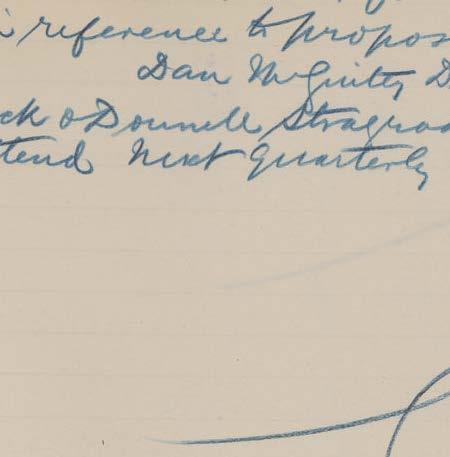 reference to propos
Dan McGinty D
ck o'Donnell
tend next Quarterly